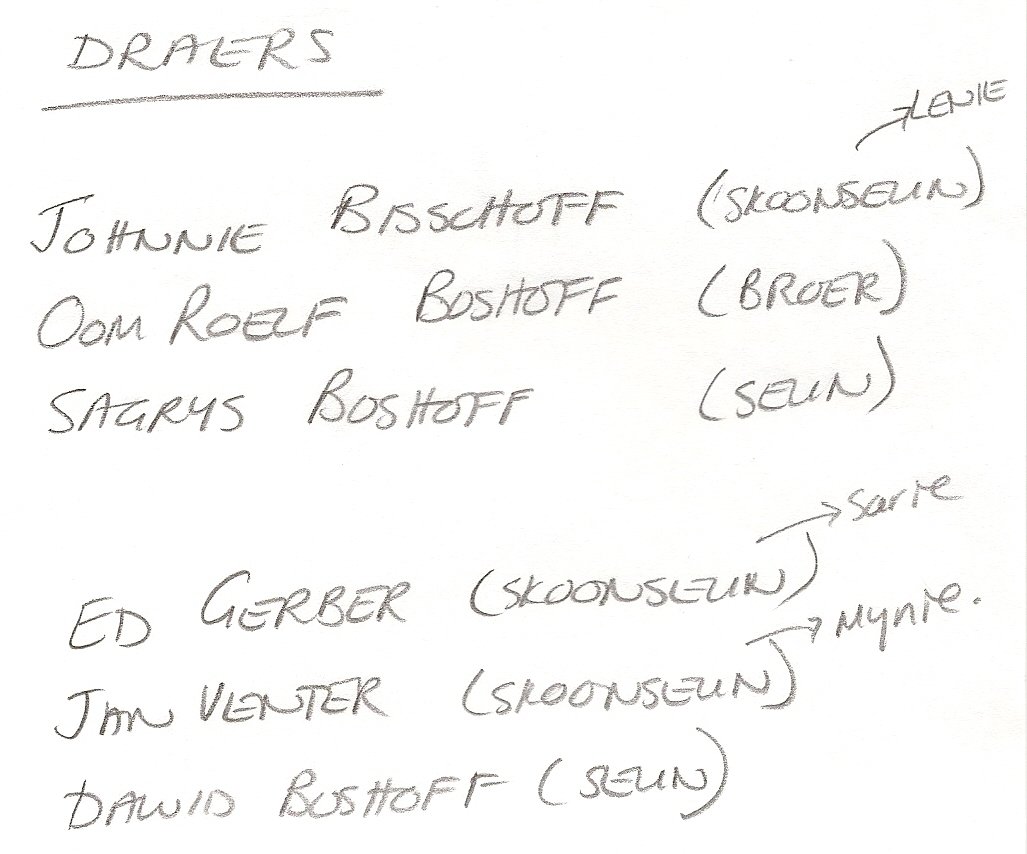 DRAERS
→ LENIE
JOHNNIE BISSCHOFF (SKOONSEUN)
OOM ROELF BOSHOFF (BROER)
SAGRYS BOSHOFF (SEUN)
→ Sarie
ED GERBER (SKOONSEUN)
→ Mynie.
JAN VENTER (SKOONSEUN)
DAWID BOSHOFF (SEUN)